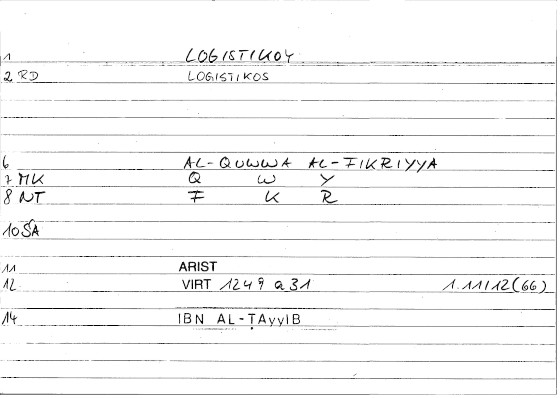 1 LOGISTIKOY
2 RD LOGISTIKOS
6 AL-QUWWA AL-FIKRIYYA
7 MK Q W Y
8 NT F K R
10 ŠA
11 ARIST
12 VIRT 1249 a 31 1.11/12(66)
14 IBN AL-ṬAyyIB